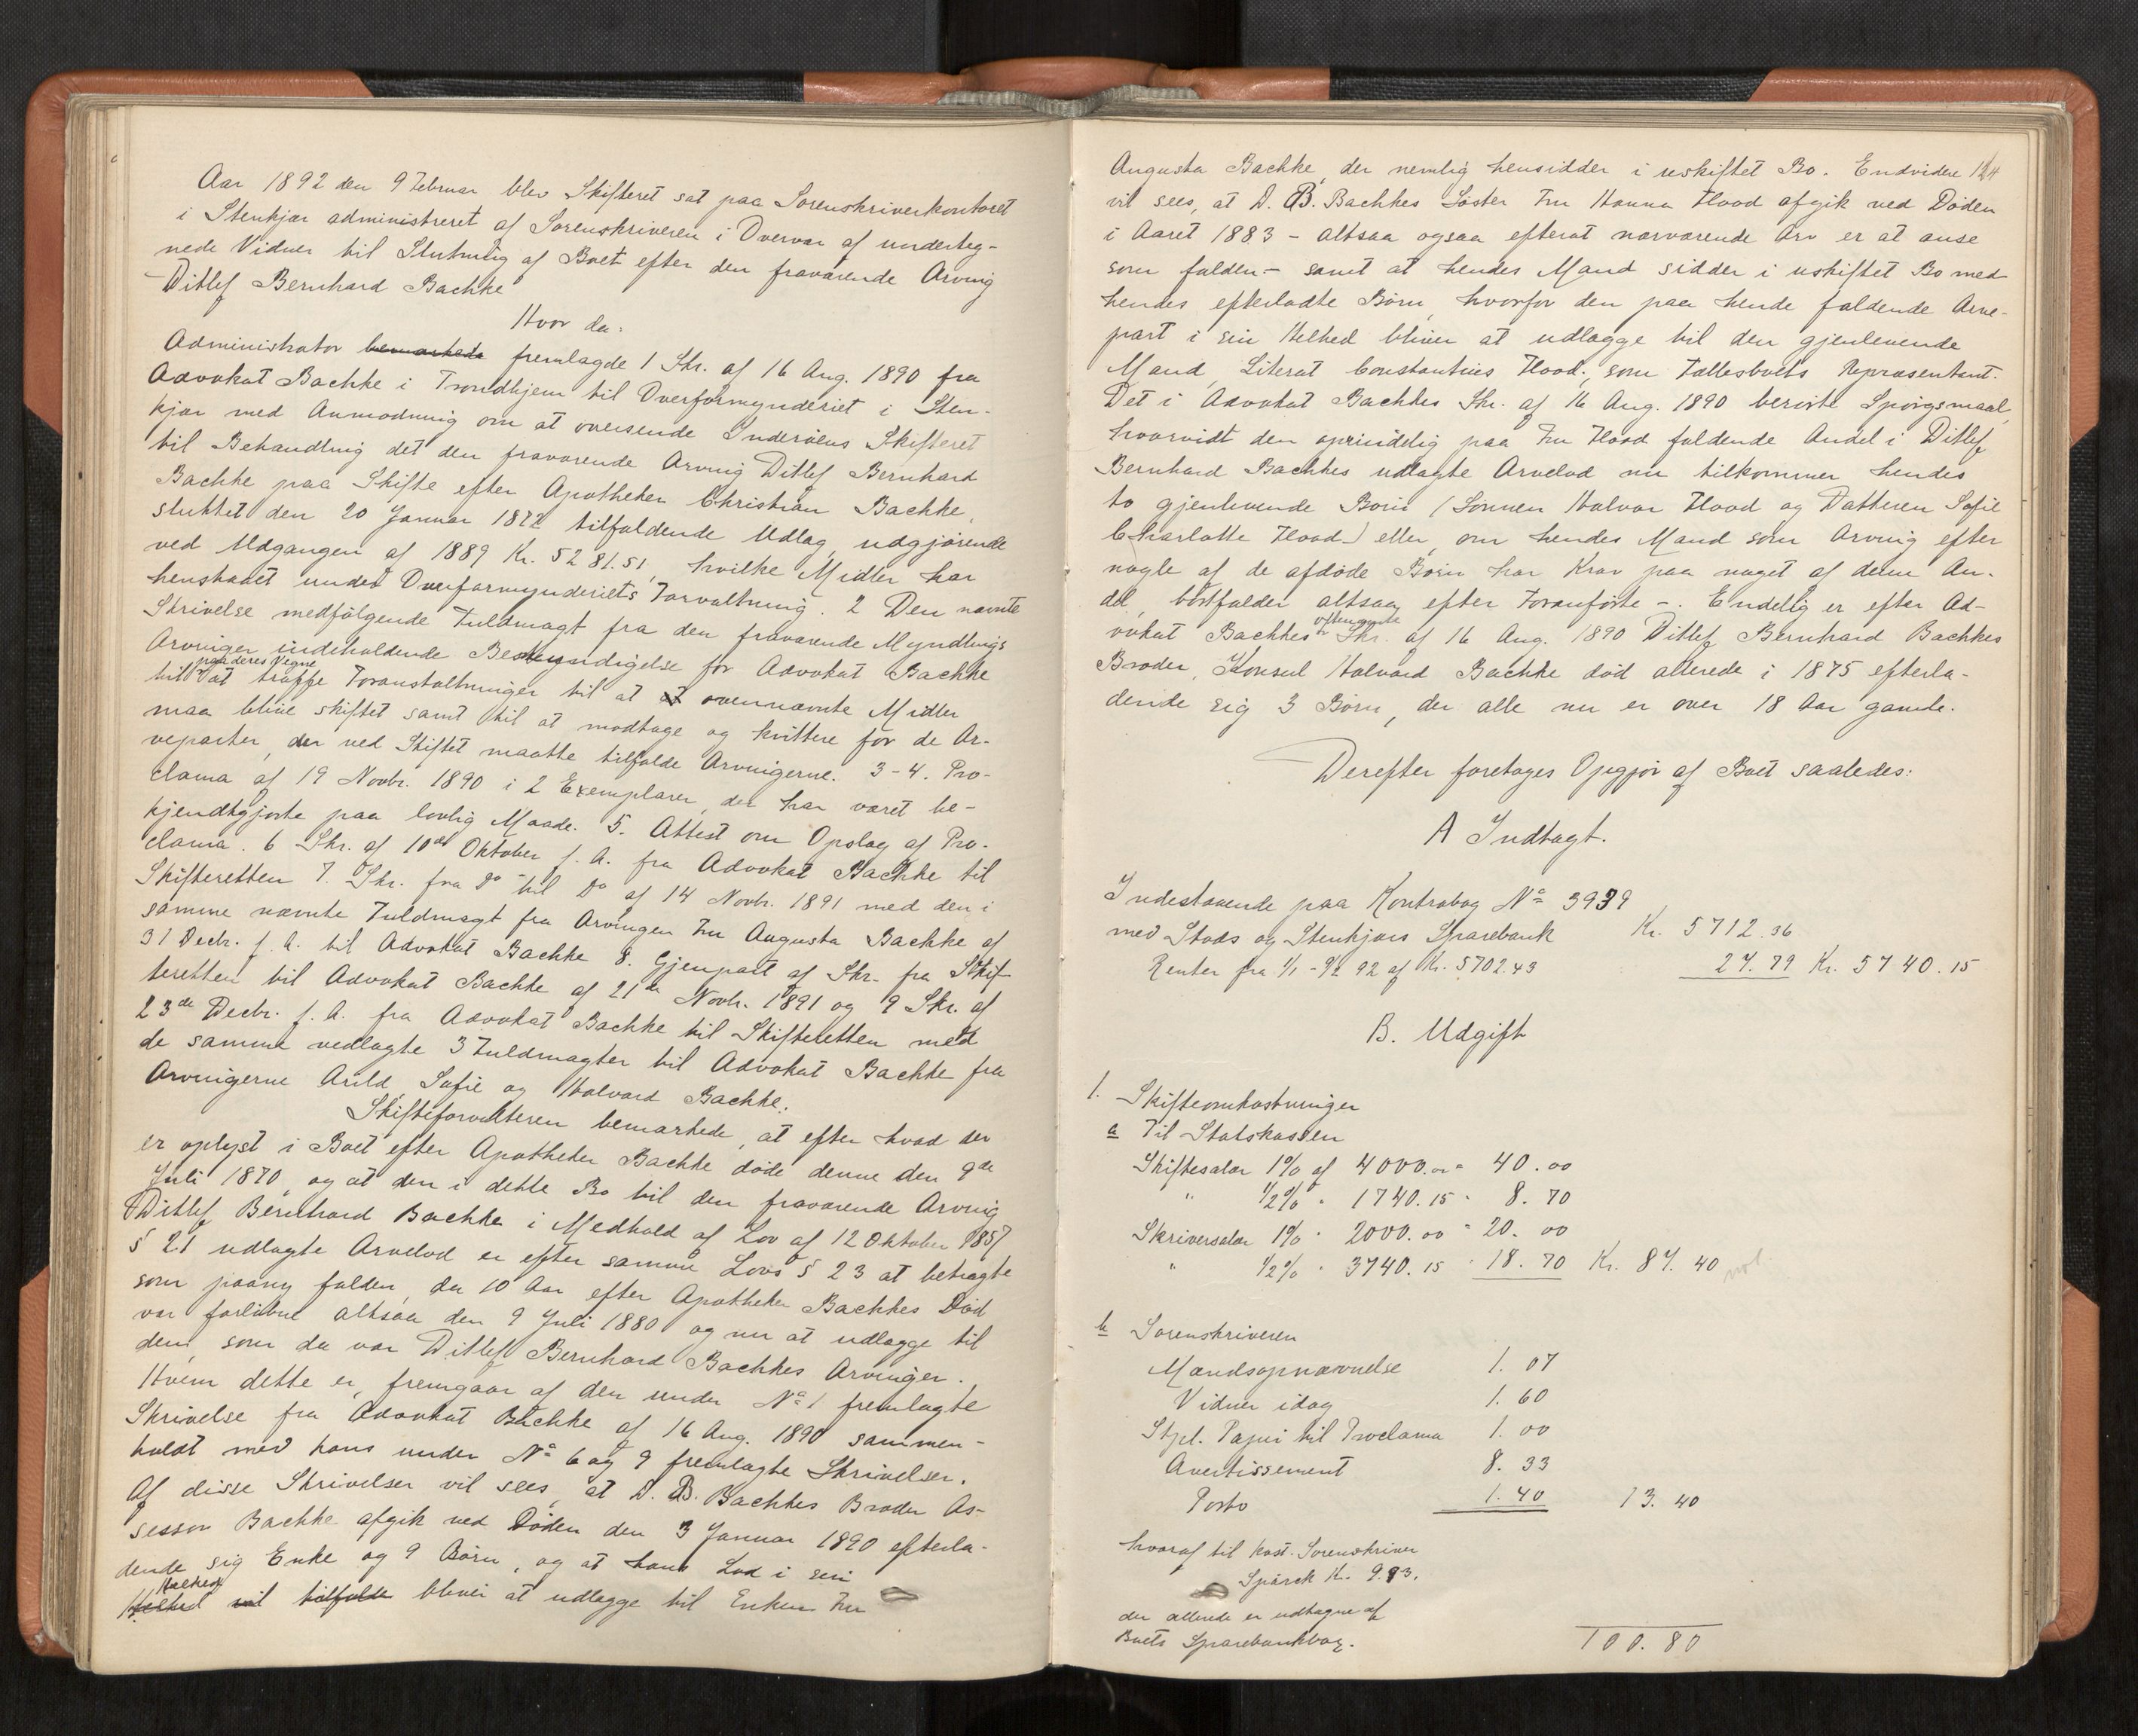 Aar 1892 den 9 Februar blev Skifteret sat paa Sorenskriverkontoret
i Stenkjær administreret af Sorenskriveren i Overvær af underteg-
nede Vidner til Slutning af Boet efter den fraværende Arving
Ditlef Bernhard Bachke
Hvor da:
Administrator bemærkede fremlagde 1 Skr. af 16 Aug. 1890 fra
Advokat Bachke i Trondhjem til Overformynderiet i Sten-
kjær med Anmodning om at oversende Inderøens Skifteret
til Behandling det den fraværende Arving Ditlef Bernhard
Bachke paa Skifte efter Apotheker Christian Bachke,
sluttet den 20 Januar 1872 tilfaldende Udlæg, udgjørende
ved Udgangen af 1889 Kr. 5281.51, hvilke Midler har
henstaaet under Overformynderiets Forvaltning. 2 Den nævnte
Skrivelse medfølgende Fuldmagt fra den fraværende Myndlings
Arvinger indeholdende Bemyndigelse for Advokat Bachke
til paa deres Vegne at træffe Foranstaltninger til at at ovennævnte Midler
maa blive skiftet samt til at modtage og kvittere for de Ar-
veparter, der ved Skiftet maatte tilfalde Arvingerne. 3-4. Pro-
clama af 19 Novbr. 1890 i 2 Exemplarer, der har været be-
kjendtgjorte paa lovlig Maade. 5. Attest om Opslag af Pro-
clama. 6 Skr. af 10de Oktober f. A. fra Advokat Bachke til
Skifteretten 7. Skr. fra Do til Do af 14 Novbr. 1891 med den i
samme nævnte Fuldmagt fra Arvingen Fru Augusta Bachke af
31 Decbr. f. A. til Advokat Bachke 8. Gjenpart af Skr. fra Skif-
teretten til Advokat Bachke af 21de Novbr. 1891 og 9 Skr. af
23de Decbr. f. A. fra Advokat Bachke til Skifteretten med
de samme vedlagte 3 Fuldmagter til Advokat Bachke fra
Arvingerne Arild, Sofie og Halvard Bachke.
Skifteforvalteren bemærkede, at efter hvad der
er oplyst i Boet efter Apotheker Bachke døde denne den 9de
Juli 1870, og at den i dette Bo til den fraværende Arving
Ditlef Bernhard Bachke i Medhold af Lov af 12 Oktober 1857
§ 21 udlagte Arvelod er efter samme Lovs § 23 at betragte
som paany falden, da 10 Aar efter Apotheker Bachkes Død
var forløbne altsaa den 9 Juli 1880 og nu at udlægge til
dem, som da var Ditlef Bernhard Bachkes Arvinger.
Hvem dette er, fremgaar af den under No 1 fremlagte
Skrivelse fra Advokat Bachke af 16 Aug. 1890 sammen-
holdt med hans under No 6 og 9 fremlagte Skrivelser.
Af disse Skrivelser vil sees, at D. B. Bachkes Broder As-
sessor Bachke afgik ved Døden den 3 Januar 1890 efterla-
dende sig Enke og 9 Børn, og at hans Lod i sin
Helhed Helhed vil tilfalde bliver at udlægge til Enken Fru
Augusta Bachke, der nemlig hensidder i uskiftet Bo. Endvidere 124
vil sees, at D. B. Bachkes Søster Fru Hanna Flood afgik ved Døden
i Aaret 1883 - altsaa ogsaa efterat nærværende Arv er at anse
som falden - samt at hendes Mand sidder i uskiftet Bo med
hendes efterladte Børn, hvorfor den paa hende faldende Arve-
part i sin Helhed bliver at udlægge til den gjenlevende
Mand, Literat Constantius Flood, som Fællesboets Repræsentant.
Det i Advokat Bachkes Skr. af 16 Aug. 1890 berørte Spørgsmaal,
hvorvidt den oprindelig paa Fru Flood faldende Andel i Ditlef
Bernhard Bachkes udlagte Arvelod nu tilkommer hendes
to gjenlevende Børn (Sønnen Halvor Flood og Datteren Sofie
Charlotte Flood) eller, om hendes Mand som Arving efter
nogle af de afdøde Børn har Krav paa noget af denne An-
del, bortfalder altsaa efter Foranførte -. Endelig er efter Ad-
vokat Bachkes oftenævnte Skr. af 16 Aug. 1890 Ditlef Bernhard Bachkes
Broder, Konsul Halvard Bachke død allerede i 1875 efterla-
dende sig 3 Børn, der alle nu er over 18 Aar gamle.
Derefter foretages Opgjør af Boet saaledes:
A Indtægt.
Indestaaende paa Kontrabog No 3939
med Stods og Stenkjærs Sparebank Kr. 5712.36
Renter fra 1/1 - 9/2 92 af Kr. 5702.43 27.79 Kr. 5740.15
B. Udgift
1. Skifteomkostninger
a Til Statskassen
Skiftesalær 1% af 4000.00 = 40.00
" 1/2% " 1740.15 " 8.70
Skriversalær 1% " 2000.00 " 20.00
" 1/2% " 3740.15 " 18.70 Kr. 87.40
b Sorenskriveren
Mandsopnævnelse 1.07
Vidner idag 1.60
Stpl. Papir til Proclama 1.00
Avertissement 8.33
Porto 1.40 13.40
hvoraf til konst. Sorenskriver
Spørck Kr. 9.93.
der allerede er udtagne af
Boets Sparebankbog. 100.80